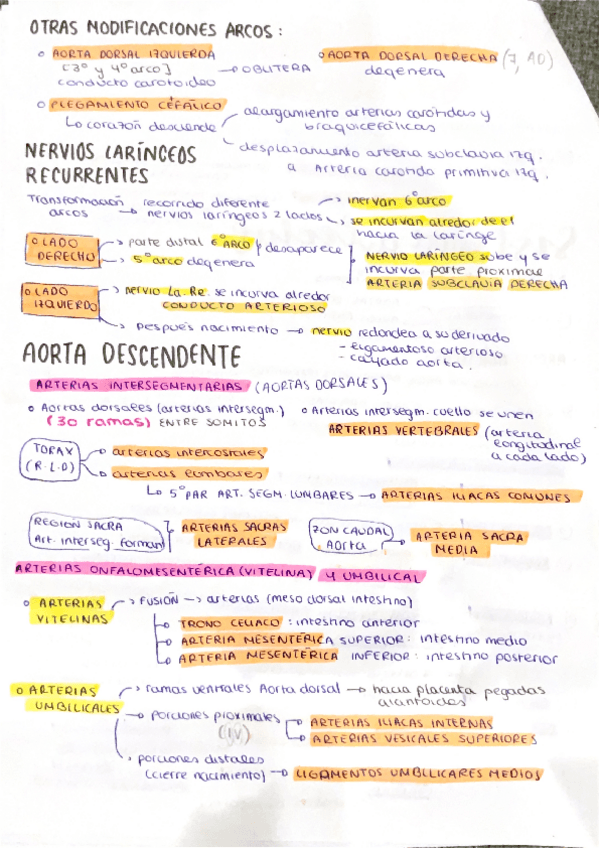 OTRAS MODIFICACIONES ARCOS:
o AORTA DORSAL IZQUIERDA
[3º y 4º arco] → OBLITERA
conducto carotoideo
o AORTA DORSAL DERECHA (7, AD)
degenera
o PLEGAMIENTO CEFÁLICO
↳ corazón desciende
alargamiento arterias carótidas y
braquicefálicas
desplazamiento arteria subclavia izq.
a Arteria carotida primitiva izq.
NERVIOS LARÍNGEOS
RECURRENTES
Transformación arcos → recorrido diferente
nervios laríngeos 2 lados
→ inervan 6º arco
→ se incurvan alredor de el
hacia la laringe
o LADO DERECHO
→ parte distal 6º ARCO desaparece
→ 5º arco degenera
NERVIO LARÍNGEO sube y se
incurva parte proximal
ARTERIA SUBCLAVIA DERECHA
o LADO IZQUIERDO
→ nervio La.Re se incurva alredor
CONDUCTO ARTERIOSO
→ Después nacimiento → nervio redondea a su derivado
- ligamentoso arterioso
- cayado aorta.
AORTA DESCENDENTE
ARTERIAS INTERSEGMENTARIAS (AORTAS DORSALES)
o Aortas dorsales (arterias intersegm.)
(30 ramas) ENTRE SOMITOS
o Arterias intersegm. cuello se unen
ARTERIAS VERTEBRALES (arteria
longitudinal
a cada lado)
TORAX
(R.L.D)
→ arterias intercostales
→ arterias lumbares
↳ 5º PAR ART. SEGM. LUMBARES → ARTERIAS ILIACAS COMUNES
REGIÓN SACRA
Art. interseg. forman
ARTERIAS SACRAS
LATERALES
ZON CAUDAL
Aorta
→ ARTERIA SACRA
MEDIA
ARTERIAS ONFALOMESENTÉRICA (VITELINA) Y UMBILICAL
o ARTERIAS VITELINAS
→ FUSIÓN → arterias (meso dorsal intestino)
→ TRONO CELIACO : intestino anterior
→ ARTERIA MESENTÉRICA SUPERIOR: intestino medio
→ ARTERIA MESENTÉRICA INFERIOR: intestino posterior
o ARTERIAS UMBILICALES
→ ramas ventrales Aorta dorsal → hacia placenta pegadas
alantoides
→ porciones proximales
(IV)
→ ARTERIAS ILIACAS INTERNAS
→ ARTERIAS VESICALES SUPERIORES
→ porciones distales
(cierre nacimiento) → LIGAMENTOS UMBILICARES MEDIOS